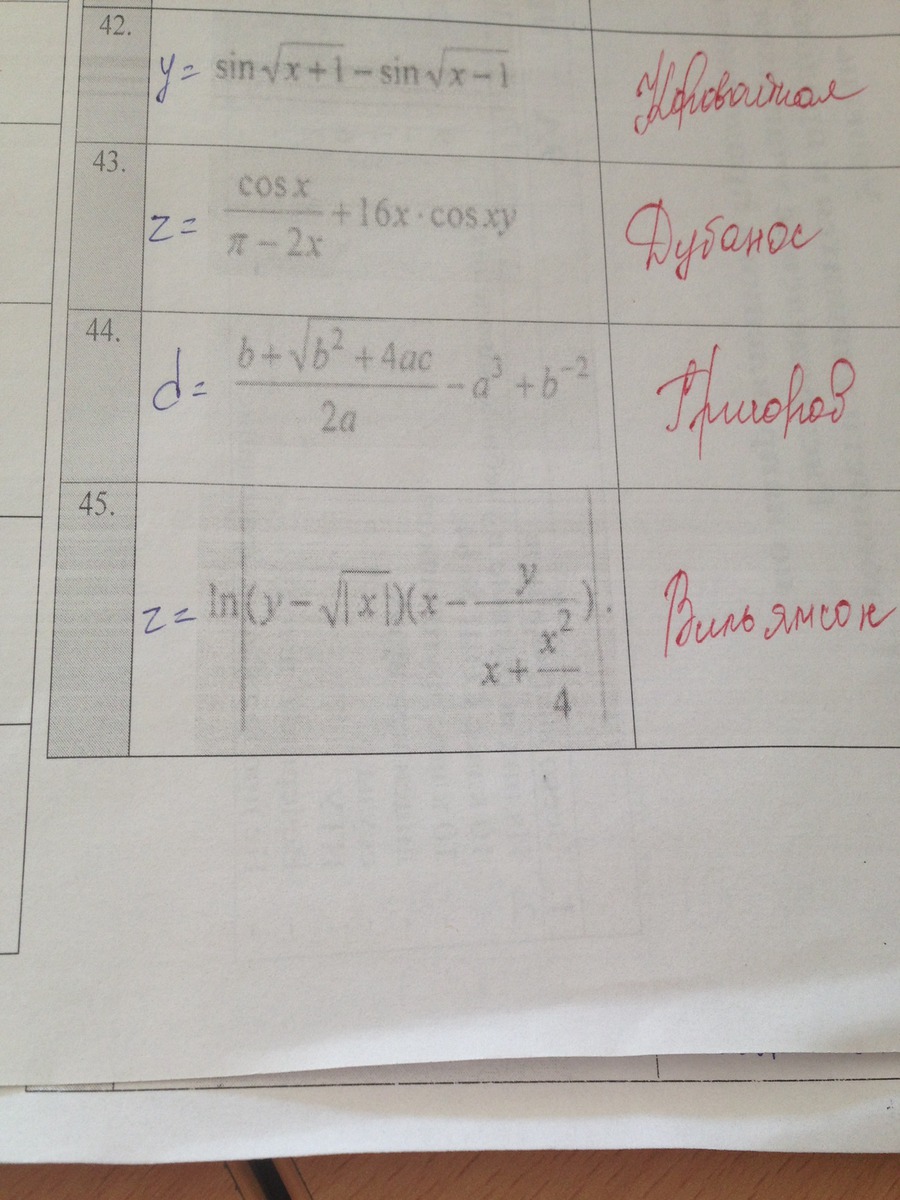 42.
y = sin √x+1 − sin √x−1
43.
z = cos x / π − 2x + 16x · cos xy
Дубанос
44.
d = b + √b² + 4ac / 2a − a³ + b⁻²
Григоров
45.
z = ln |(y − √|x|)(x − y / x + x² / 4)|.
Вильямсон